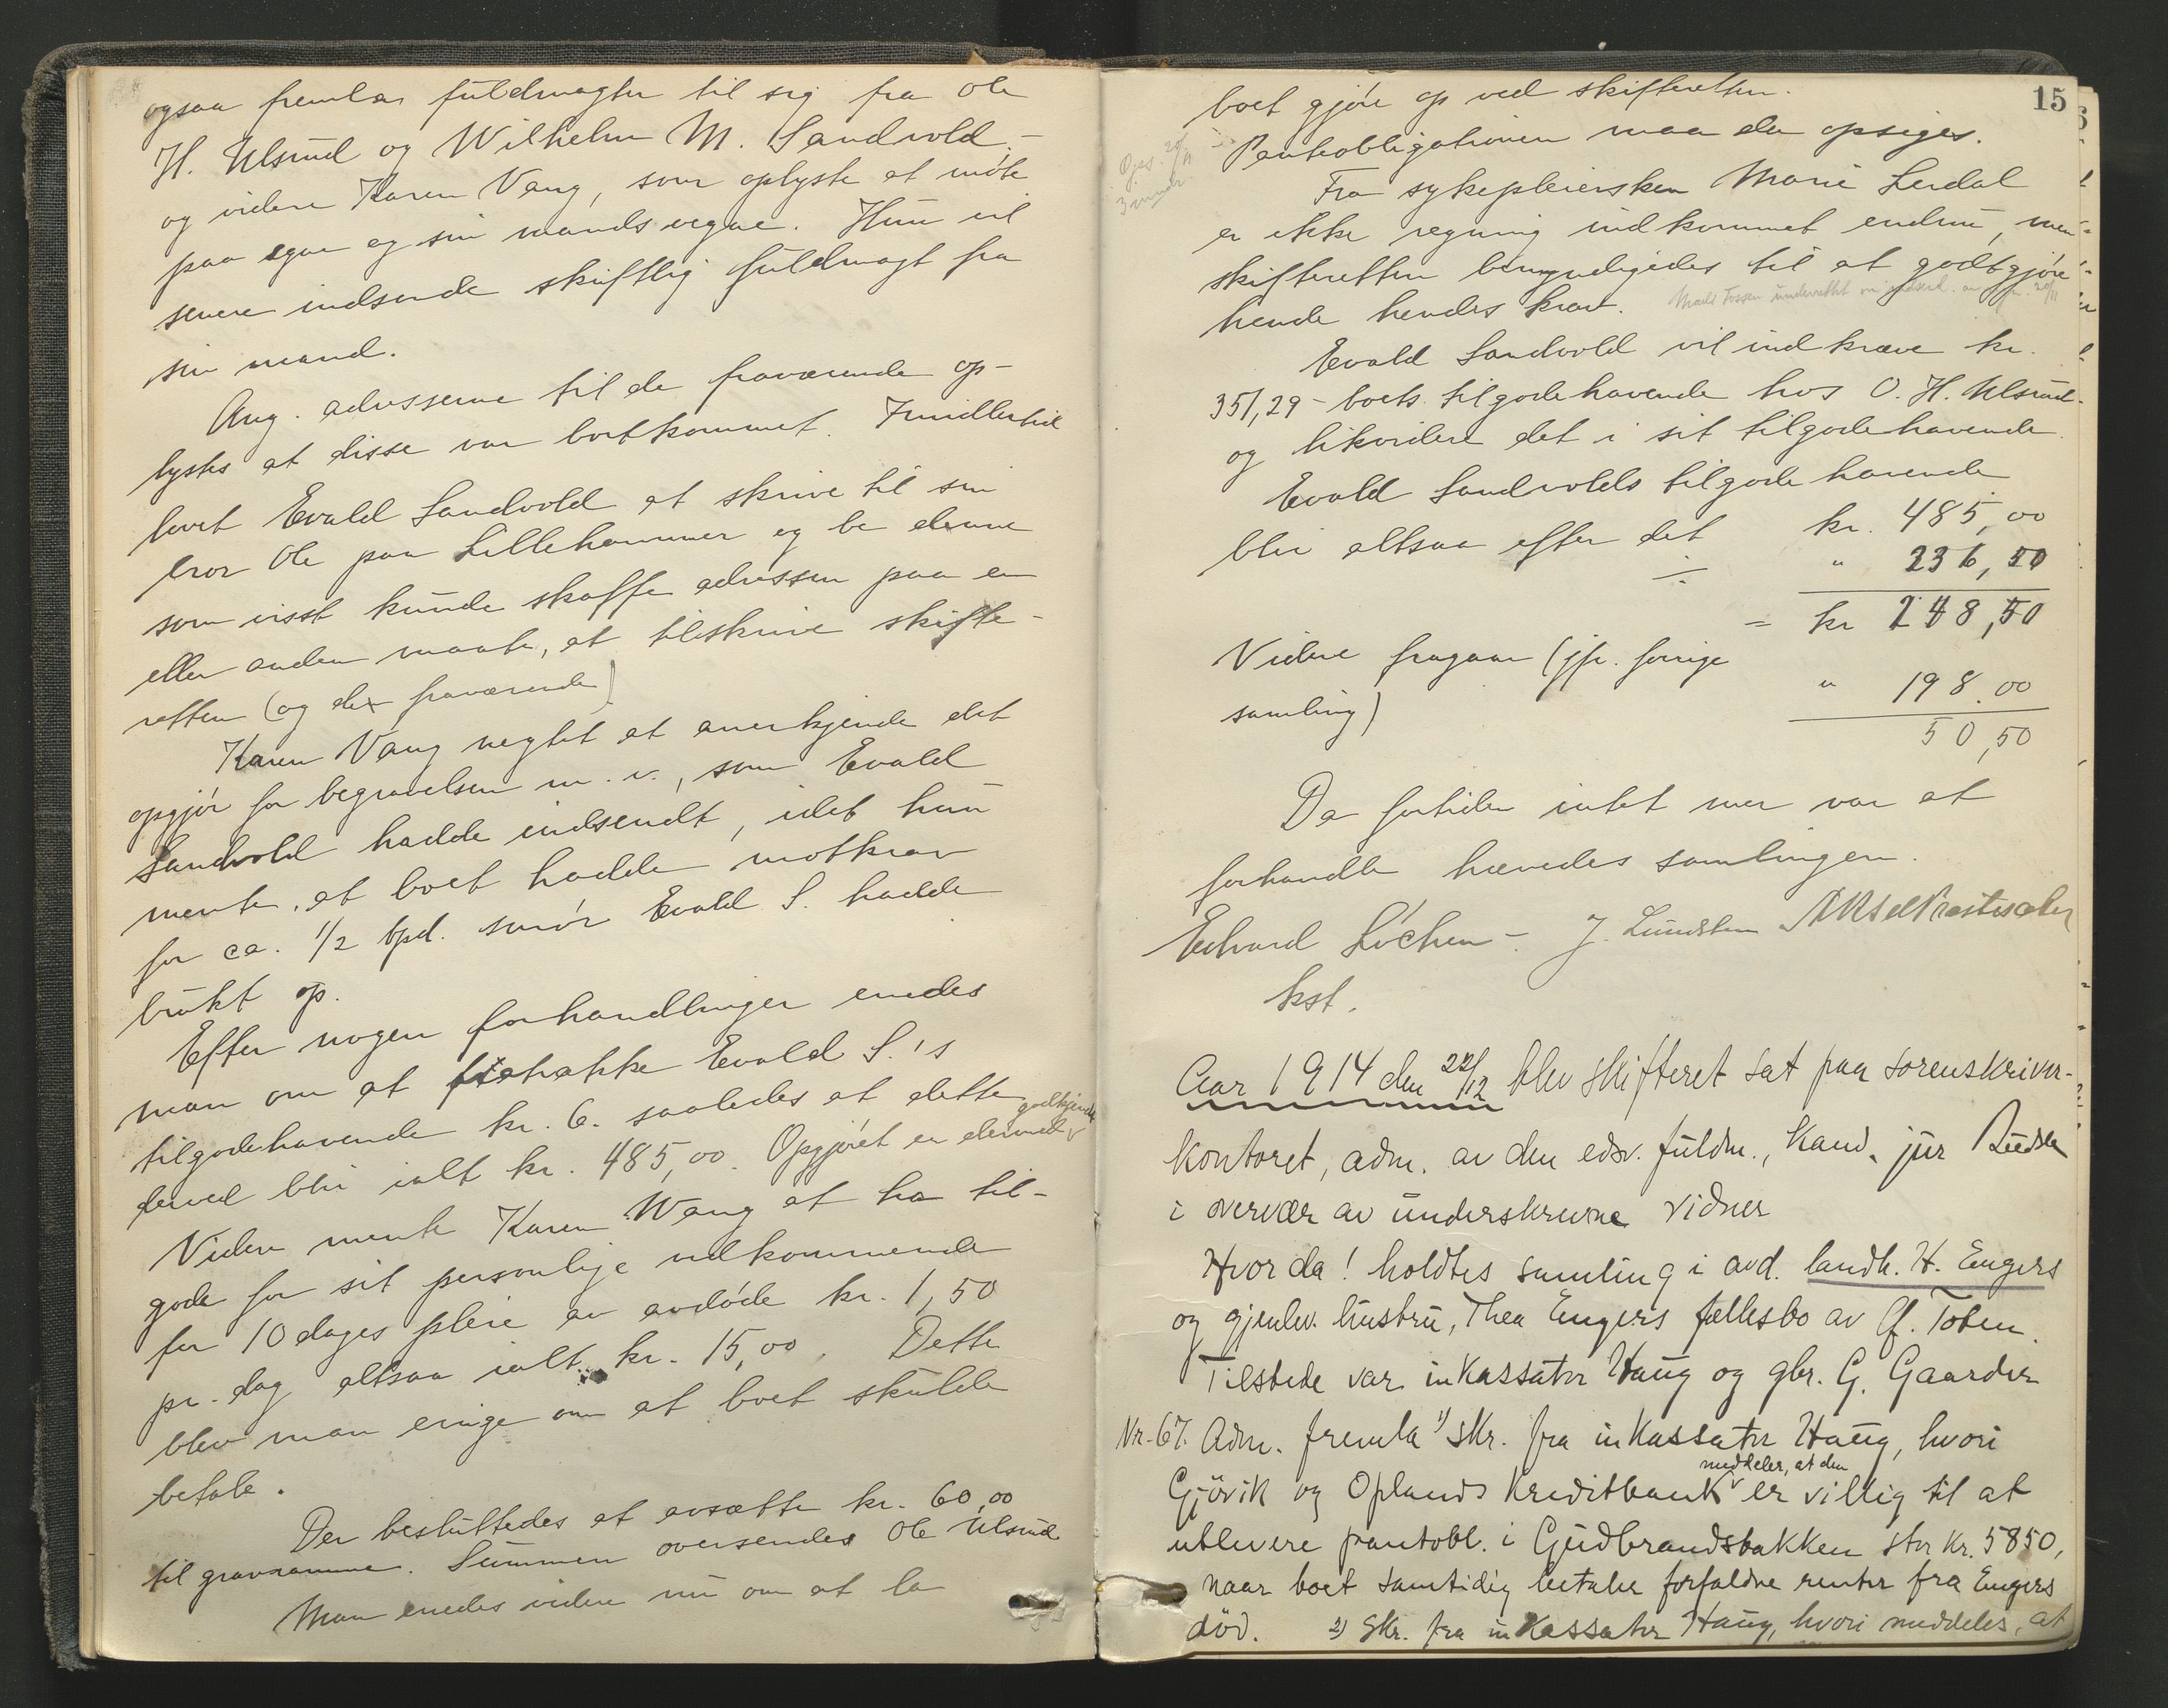 ogsaa fremla fuldmagter til sig fra Ole
H. Ulsrud og Wilhelm M. Sandvold. –
og videre Karen Vang, som oplyste at møte
paa egne og sin mands vegne. Hun vil
senere indsende skriftlig fuldmagt fra
sin mand.
Ang. adresserne til de fraværende op-
lystes at disse var bortkommet. Imidlertid
lovet Evald Sandvold at skrive til sin
bror Ole paa Lillehammer og be denne
som visst kunde skaffe adressen paa en
eller anden maate, at tilskrive skifte-
retten (og de fraværende)
Karen Vang negtet at anerkjende det
opgjør for begravelsen m.v., som Evald
Sandvold hadde indsendt, idet hun
mente, at boet hadde motkrav
for ca. 1/2 bpd. smør Evald S. hadde
brukt op.
Efter nogen forhandlinger enedes
man om at fratrække Evald S.'s
tilgodehavende kr. 6. saaledes at dette
derved blir ialt kr. 485,00. Opgjøret er dermed godkjendt
Videre mente Karen Wang at ha til-
gode for sit personlige vedkommende
for 10 dages pleie av avdøde kr. 1,50
pr. dag altsaa ialt kr. 15,00. Dette
blev man enige om at boet skulde
betale.
Der besluttedes at avsætte kr. 60,00
til gravramme. Summen oversendes Ole Ulsrud
Man enedes videre nu om at la
15
boet gjøre op ved skifteretten.
Panteobligationen maa da opsiges.
Ops. 20/11
3 mndr
Fra sykepleiersken Marie Lerdal
er ikke regning indkommet endnu, men
skifteretten bemyndigedes til at godtgjøre
hende hendes krav.
underrettet om 20/11
Evald Sandvold vil indkræve kr.
351,29 – boets tilgodehavende hos O. H. Ulsrud
og likvidere det i sit tilgodehavende
Evald Sandvolds tilgodehavende
blir altsaa efter det kr. 485,00
÷ " 236,50
= kr 248,50
Videre fragaar (jfr. forrige
samling) " 198.00
50,50
Da fortiden intet mer var at
forhandle hævedes samlingen.
Edvard Løchen – J. Lundsten
kst.
Aar 1914 den 22/12 blev skifteret sat paa sorenskriver-
kontoret, adm. av den edsv. fuldm., Kand. jur
i overvær av underskrevne vidner
Hvorda! holdtes samling i avd. landh. H. Engers
og gjenlev. hustru, Thea Engers fællesbo av Ø. Toten.
Tilstede var inkassator Haug og gbr. G. Gaarder
Nr. 67. Adm. fremla 1) skr. fra inkassator Haug, hvori
meddeler, at den
Gjøvik og Oplands Kreditbank er villig til at
utlevere pantobl. i Gudbrandsbakken stor kr. 5850,
naar boet samtidig betaler forfaldne renter fra Engers
død. 2) Skr. fra inkassator Haug, hvori meddeles, at